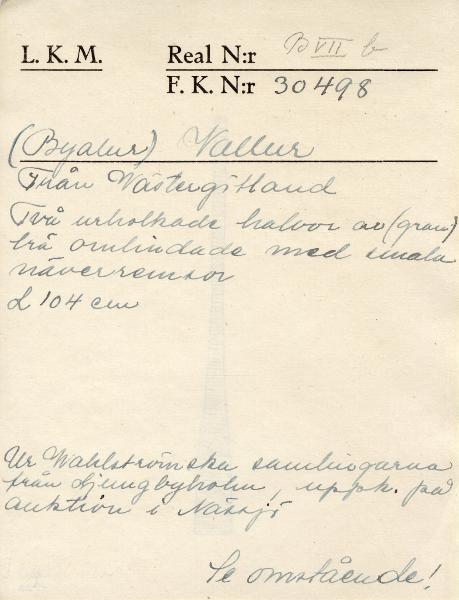 L. K. M. Real N:r B VII b
F. K. N:r 30498
(Byalur) Vallur
Från Västergötland
Två urholkade halvor av (gran)
trä omlindade med smala
näverremsor
L 104 cm
Ur Wahlströmska samlingarna
från Ljungbyholm, uppk. på
auktion i Nässjö
Se omstående!